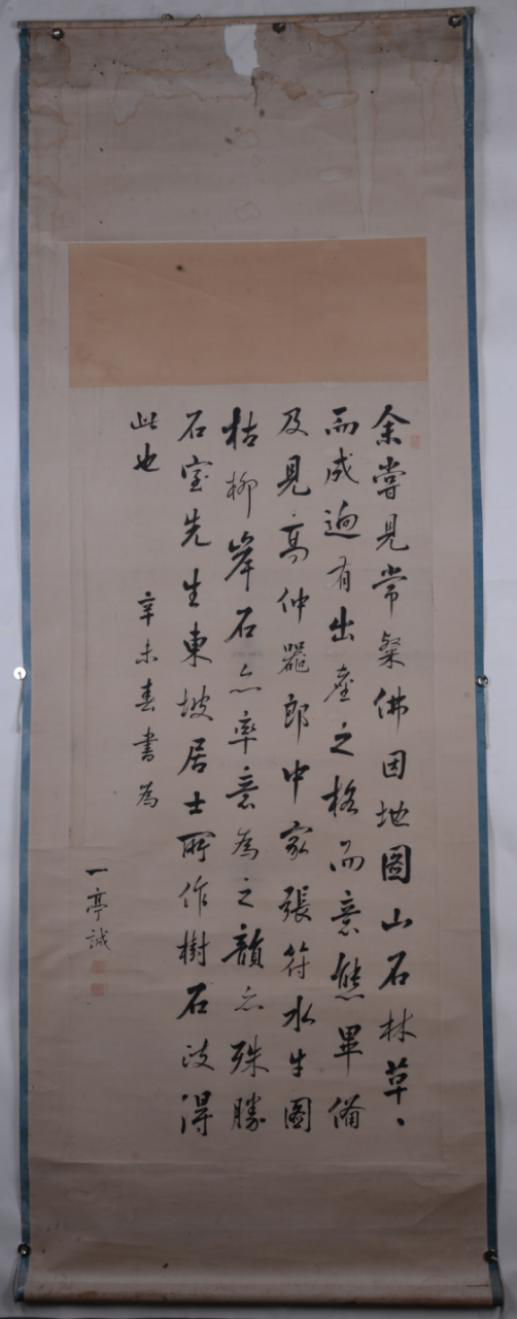 余嘗見常粲佛因地圖山石林草〻
而成迥有出塵之格而意態畢備
及見高仲器郎中家張符水牛圖
枯柳岸石亦率意為之韻亦殊勝
石室先生東坡居士所作樹石淡得
此也
辛未春書為
一亭誠